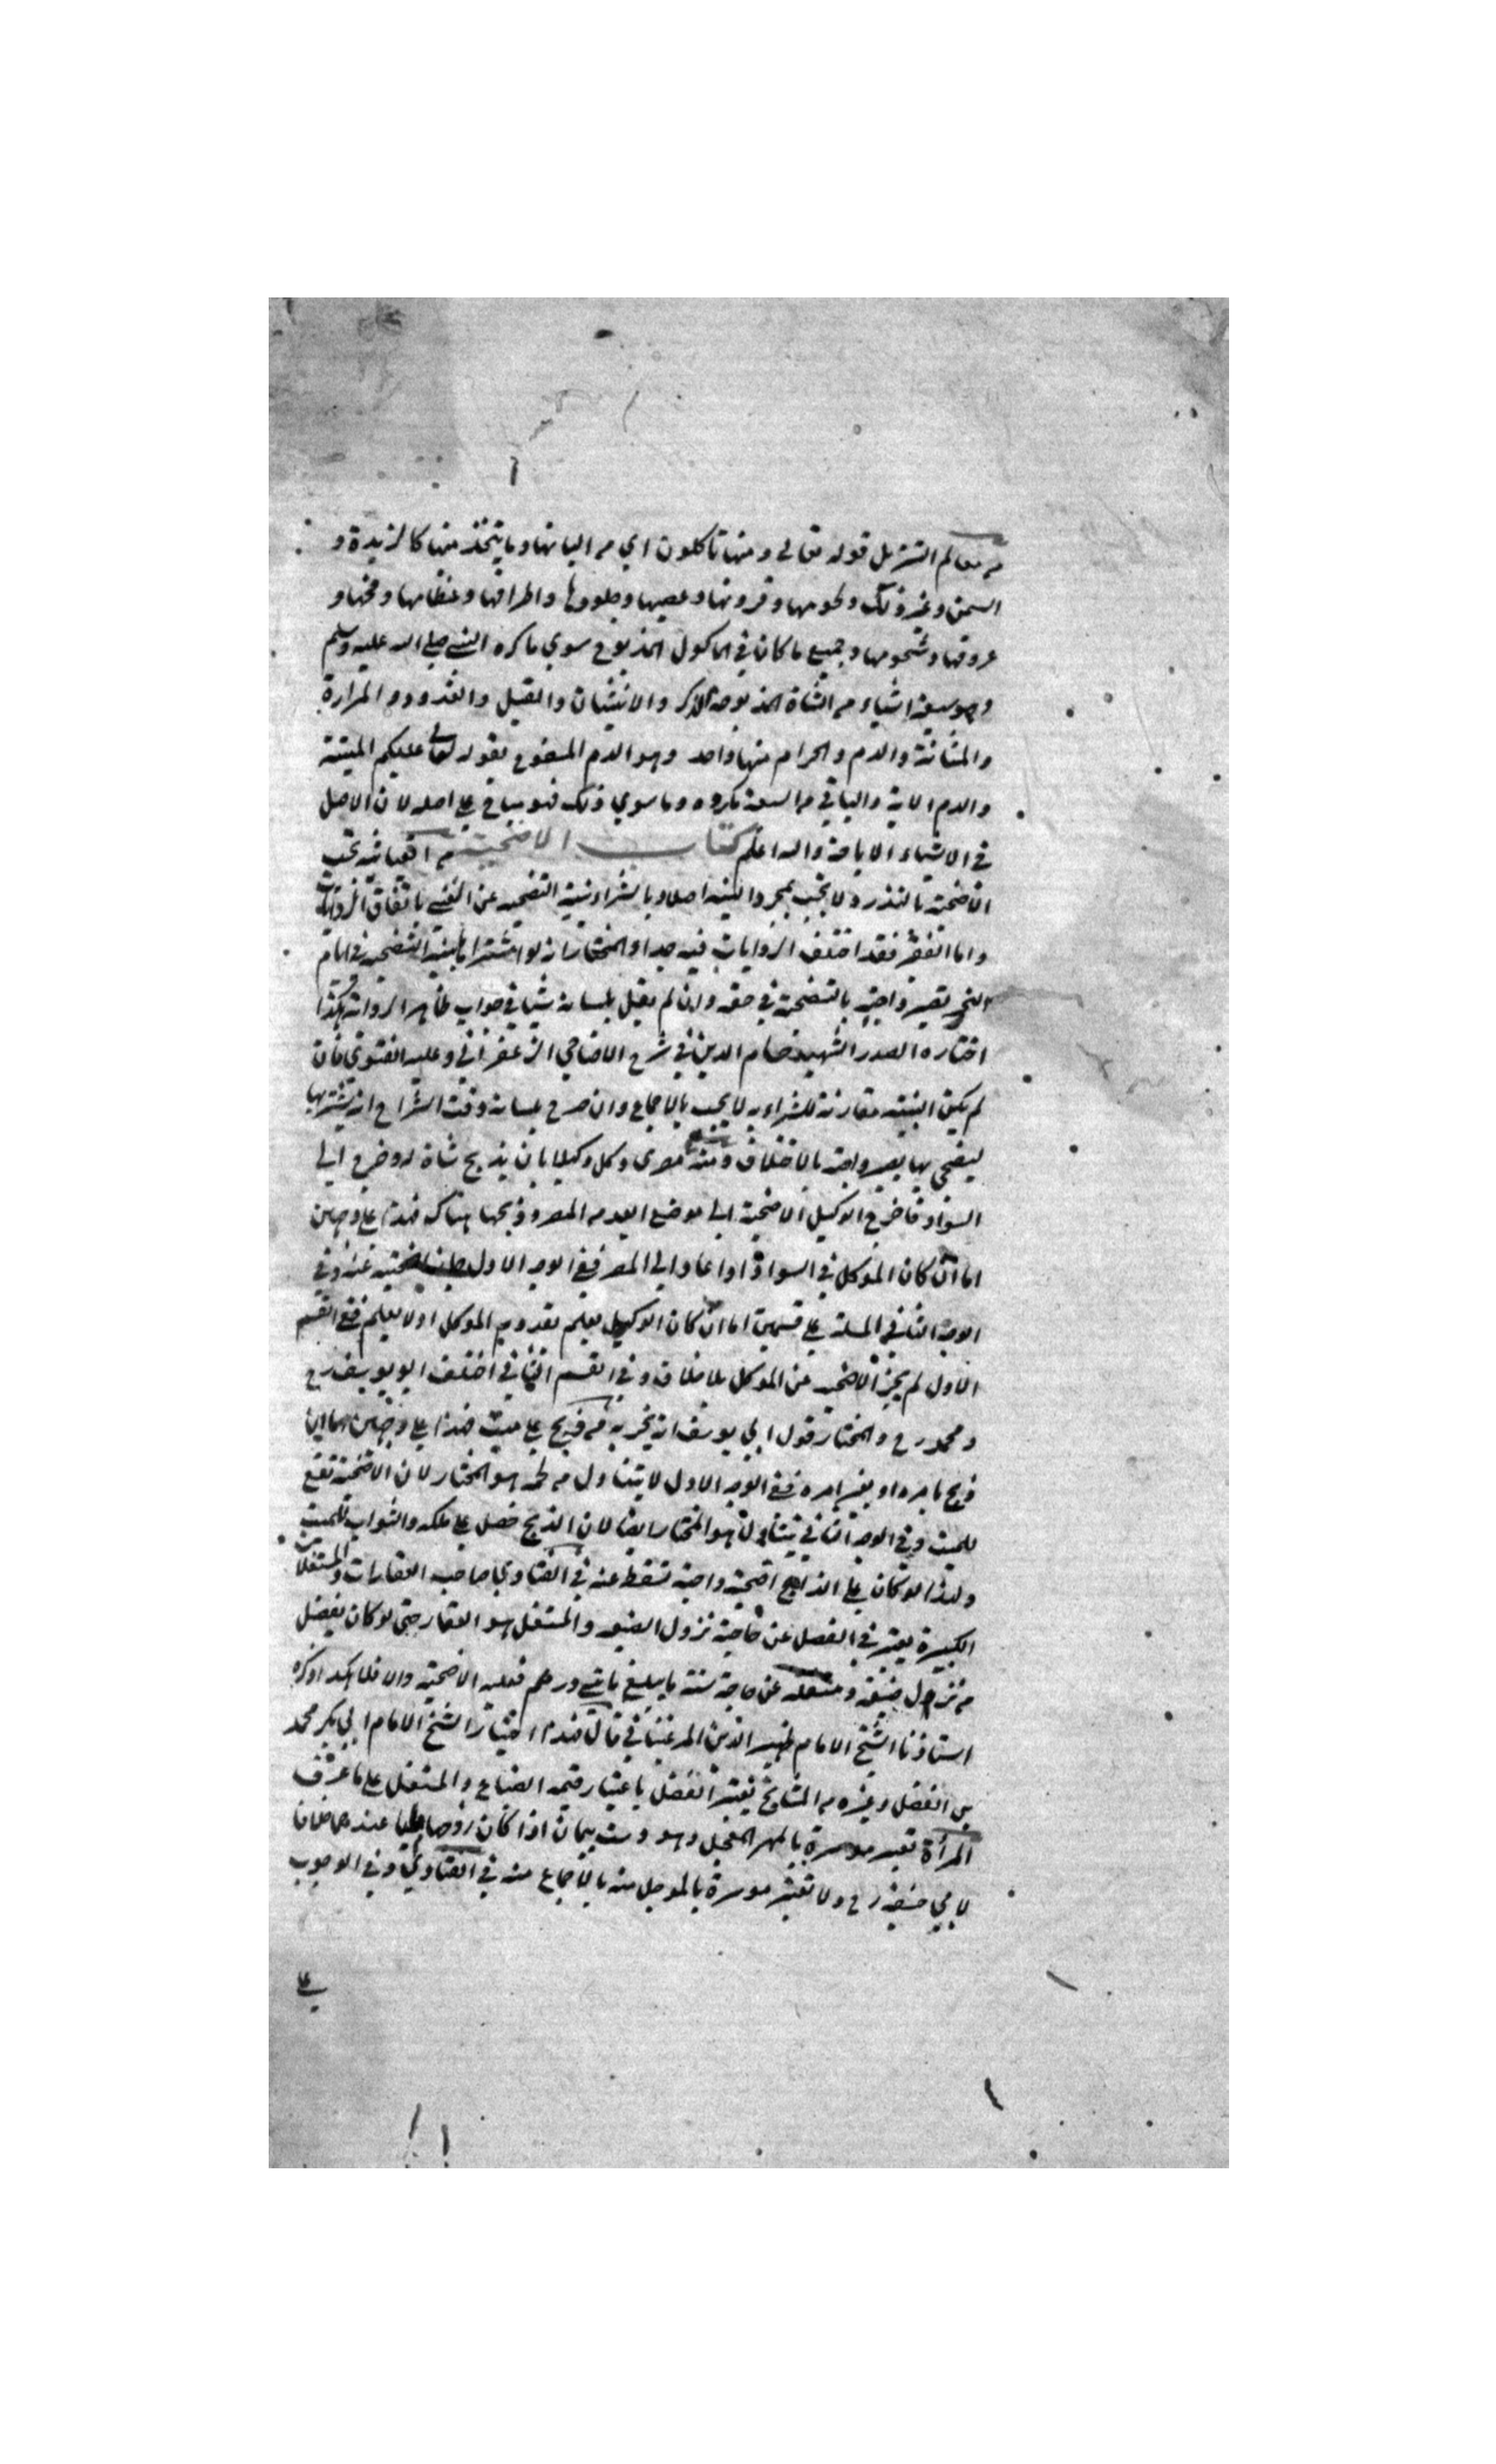 من معالم التنزيل قوله تعالى ومنها تاكلون اي من البانها وما يتخذ منها كالزبدة و
السمن وغير ذلك ولحومها وقرونها وعصبها وجلودها واطرافها وعظامها ومخها و
عروقها وشحومها وجميع ما كان في الماكول المذبوح سوي ما كره النبي صلي الله عليه وسلم
وهو سبعة اشياء من الشاة المذبوحة الذكر والانثيان والقبل والغدود والمرارة
والمثانة والدم والحرام منها واحد وهو الدم المسفوح بقوله تعالى عليكم الميتة
والدم الاية والباقي من السبعة مكروه وما سوي ذلك فهو مباح علي اصله لان الاصل
في الاشياء الاباحة والله اعلم كتاب الاضحية من تجب
الاضحية بالنذر ولا تجب بمجرد النية اصلا وبالشراء بنية التضحية عن الغني باتفاق الروايات
واما الفقير فقد اختلف الروايات فيه جدا والمختار انه لو اشتراها بنية التضحية في ايام
النحر تصير واجبة بالتضحية في حقه وان لم يقل بلسانه شيا في جواب ظاهر الرواية وهكذا
اختاره الصدر الشهيد حسام الدين في شرح الاضاحي الزعفراني وعليه الفتوي فان
لم يكن النية مقارنة للشراء به لا يجب بالاجماع وان صرح بلسانه وقت الشراء انه يشتريها
ليضحي بها يصير واجبة بلا خلاف ومنه مصري وكل وكيلا بان يذبح شاة له وخرج الي
السواد فاخرج الوكيل الاضحية الي موضع ايعد من المصر وذبحها هناك فهذا علي وجهين
اما ان كان الموكل في السواد او عاد الي المصر ففي الوجه الاول جازت اضحيته عنه وفي
الوجه الثاني المسئلة علي قسمين اما ان كان الوكيل يعلم بقدوم الموكل او لا يعلم ففي القسم
الاول لم يجز الاضحية عن الموكل بلا خلاف وفي القسم الثاني اختلف ابو يوسف رح
ومحمد رح والمختار قول ابي يوسف انه يجزيه من ذبح علي ميت فهذا علي وجهين اما ان
ذبح بامره او بغير امره ففي الوجه الاول لا يتناول من لحمه هو المختار لان الاضحية تقع
للميت وفي الوجه الثاني يتناول هو المختار ايضا لان الذبح حصل علي ملكه والثواب للميت
ولهذا لو كان علي الذابح اضحية واجبة تسقط عنه في الفتاوي صاحب العقارات والمستغلات
الكبيرة يعتبر في الفضل عن حاجته نزول الضيعة والمستغل هو العقار حتي لو كان يفضل
من نزول ضيعة ومستغله عن حاجة سنة ما يبلغ مائتي درهم فعليه الاضحية والا فلا هكذا ذكره
استاذنا الشيخ الامام ظهير الدين المرغيناني قال هذا اختيار الشيخ الامام ابي بكر محمد
بن الفضل وغيره من المشايخ يعتبر الفضل باعتبار قيمة الضياع والمستغل علي ما عرف
المرأة تعتبر موسرة بالمهر المعجل وهو دست بيمان اذا كان زوجها مليا عندهما خلافا
لابي حنيفة رح ولا تعتبر موسرة بالموجل منه بالاجماع منه في الفتاوي وفي الوجوب
علي